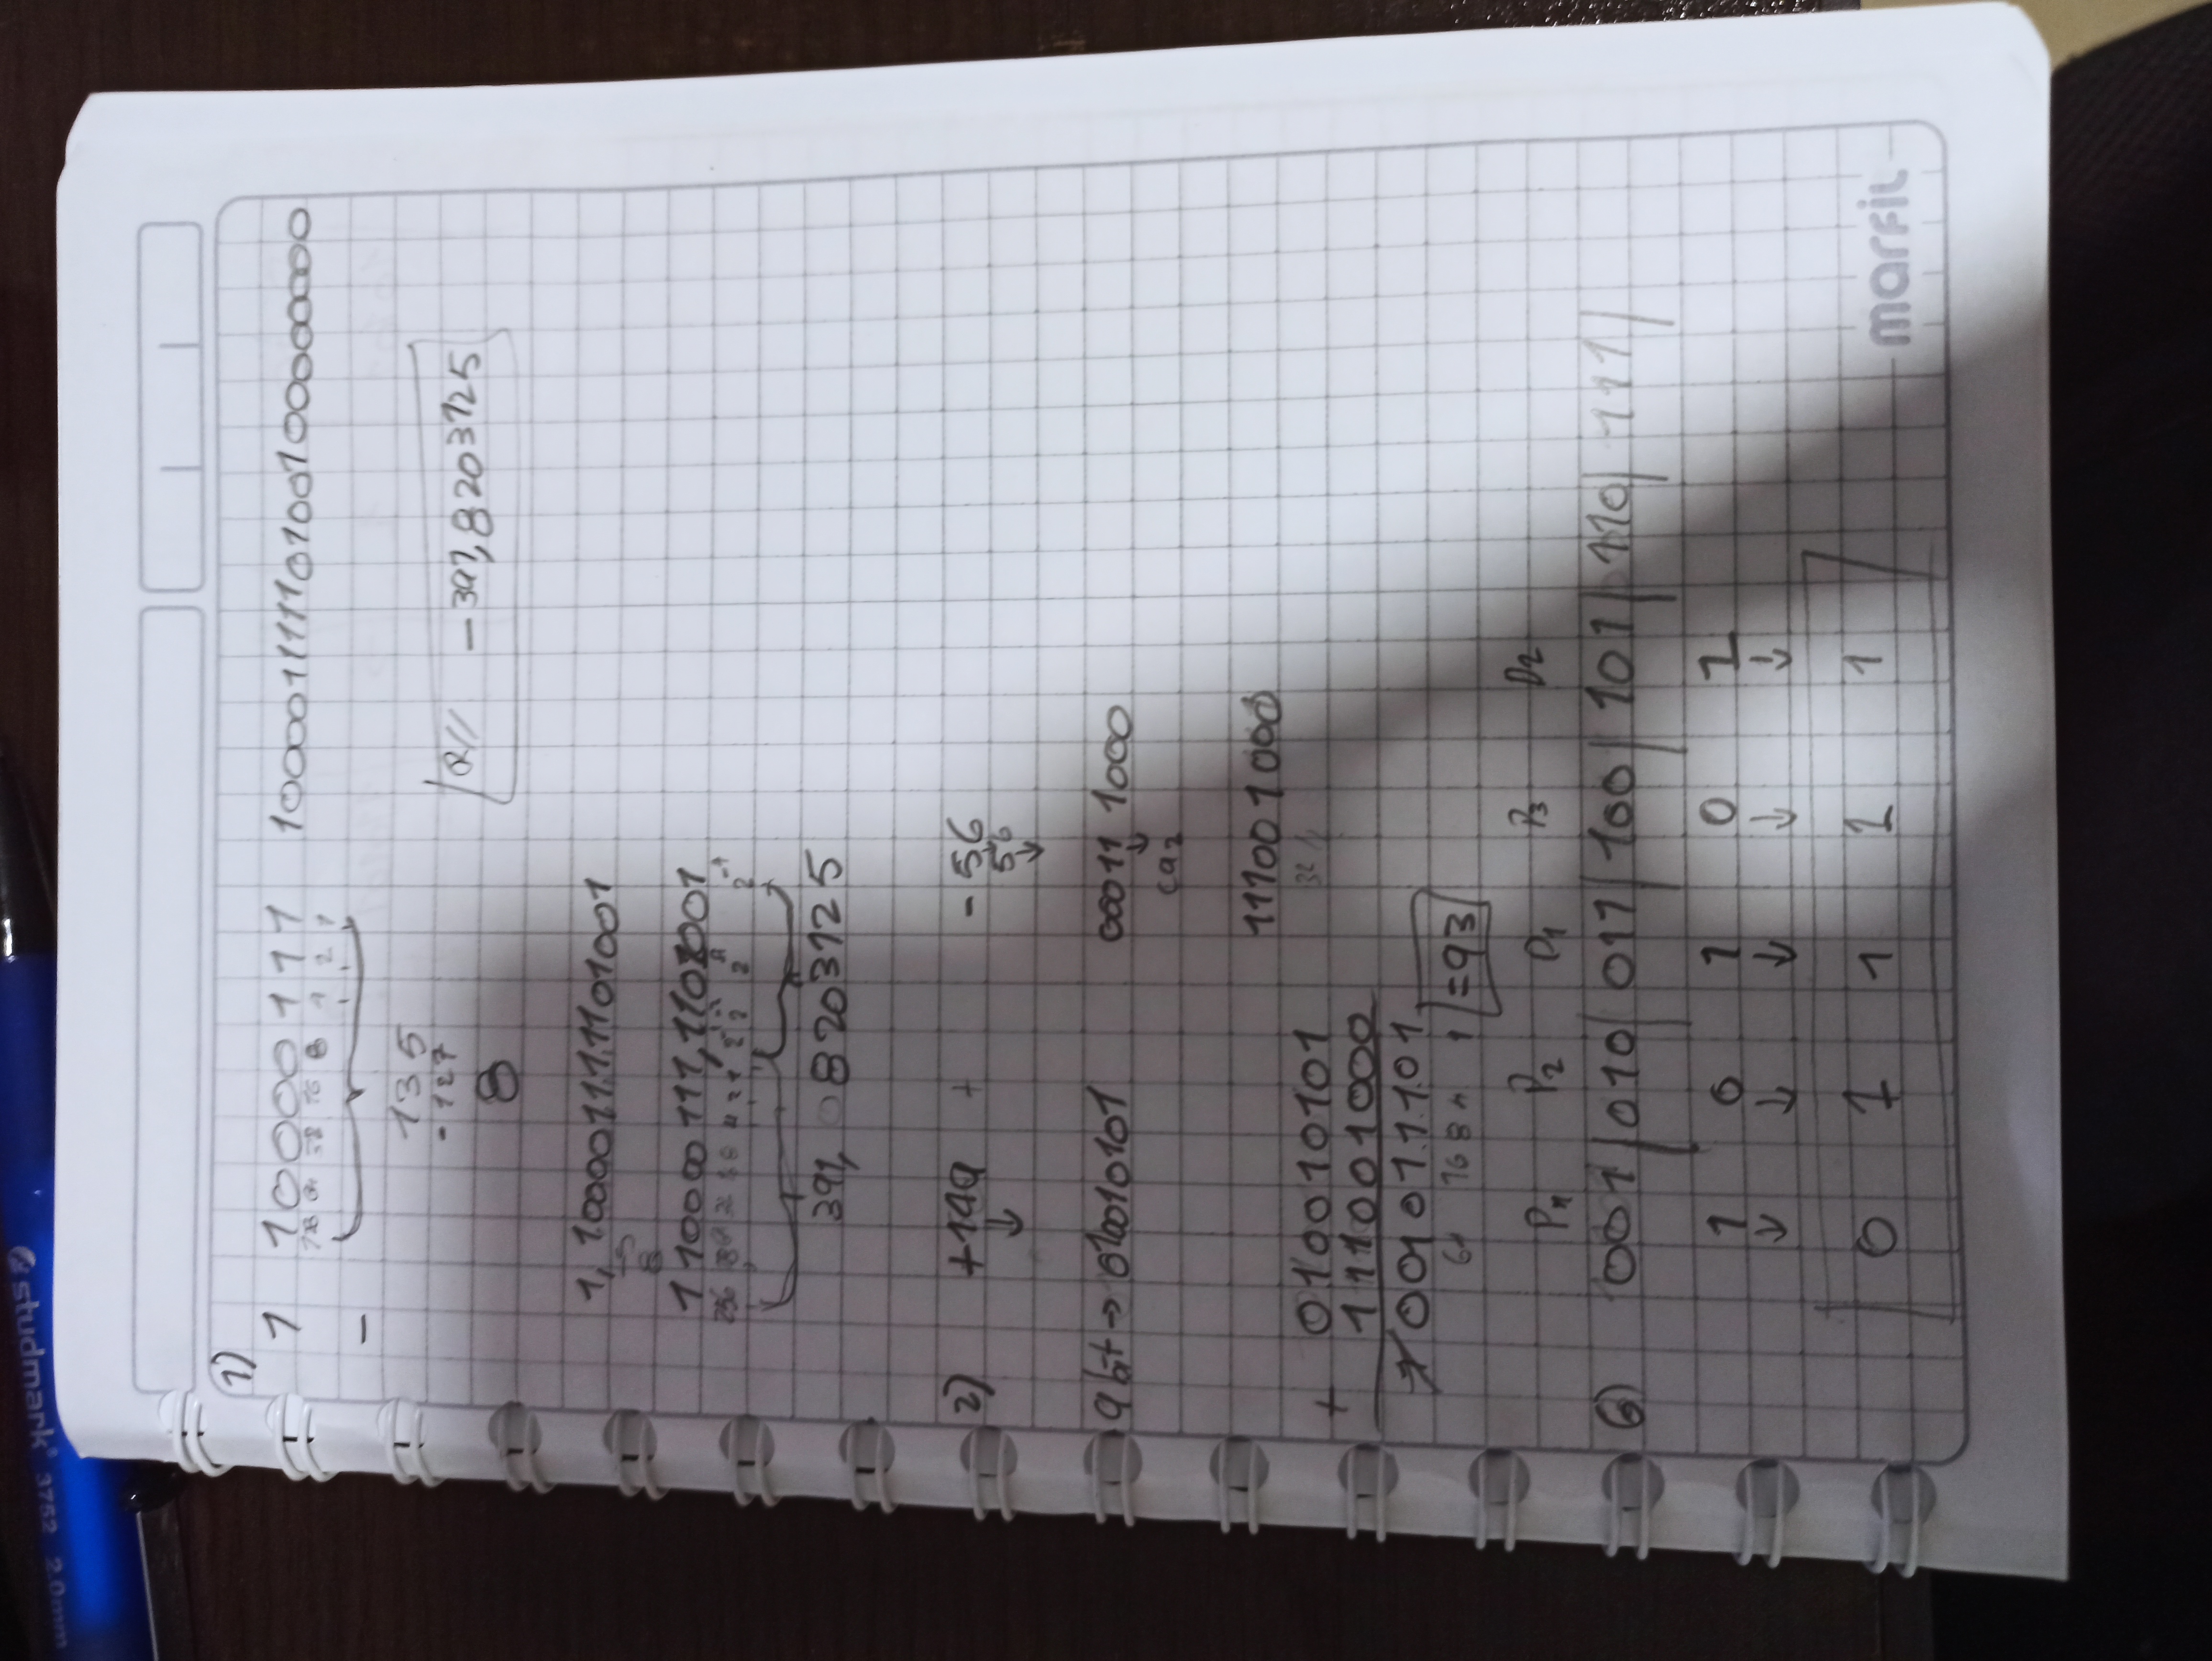 studmark® 3752 2.0mm
1)
1 10000111 10000111110100100000000
128 64 32 16 8 4 2 1
-
135
- 127
8
R// - 391,8203125
1,100001111101001
8
110000111,1101001
391, 8203125
2) +149 + - 56
56
9bit → 010010101 000111000
ca2
111001000
32
+ 010010101
111001000
1 001011101
64 16 8 4 1 = 93
P1 P2 D1 P3 D2
6) 001 | 010 | 011 | 100 | 101 | 110 | 111 |
1 0 1 0 1
0 1 1 1 1
marfil